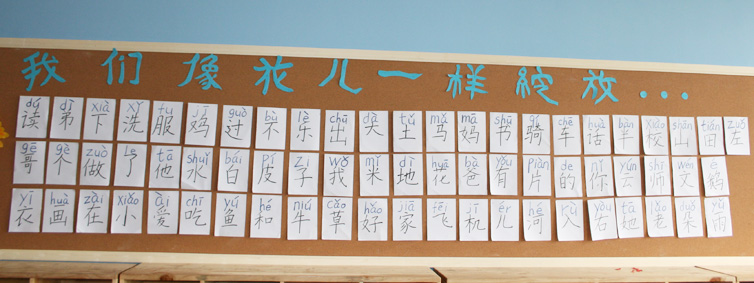 我们像花儿一样绽放...
dú dì xià xǐ fú jī guò bù lè chū dà tǔ mǎ mā shū qí chē huà bàn xiào shān tián zuǒ
读 弟 下 洗 服 鸡 过 不 乐 出 大 土 马 妈 书 骑 车 话 半 校 山 田 左
gē gè zuò le tā shuǐ bái pí zi wǒ mǐ dì huā bà yǒu piàn de nǐ yún shī wén é
哥 个 做 了 他 水 白 皮 子 我 米 地 花 爸 有 片 的 你 云 师 文 鹅
yī huà zài xiǎo ài chī yú hé niú cǎo hǎo jiā fēi jī ér hé rù yòu tā lǎo duǒ yǔ
衣 画 在 小 爱 吃 鱼 和 牛 草 好 家 飞 机 儿 河 入 右 她 老 朵 雨